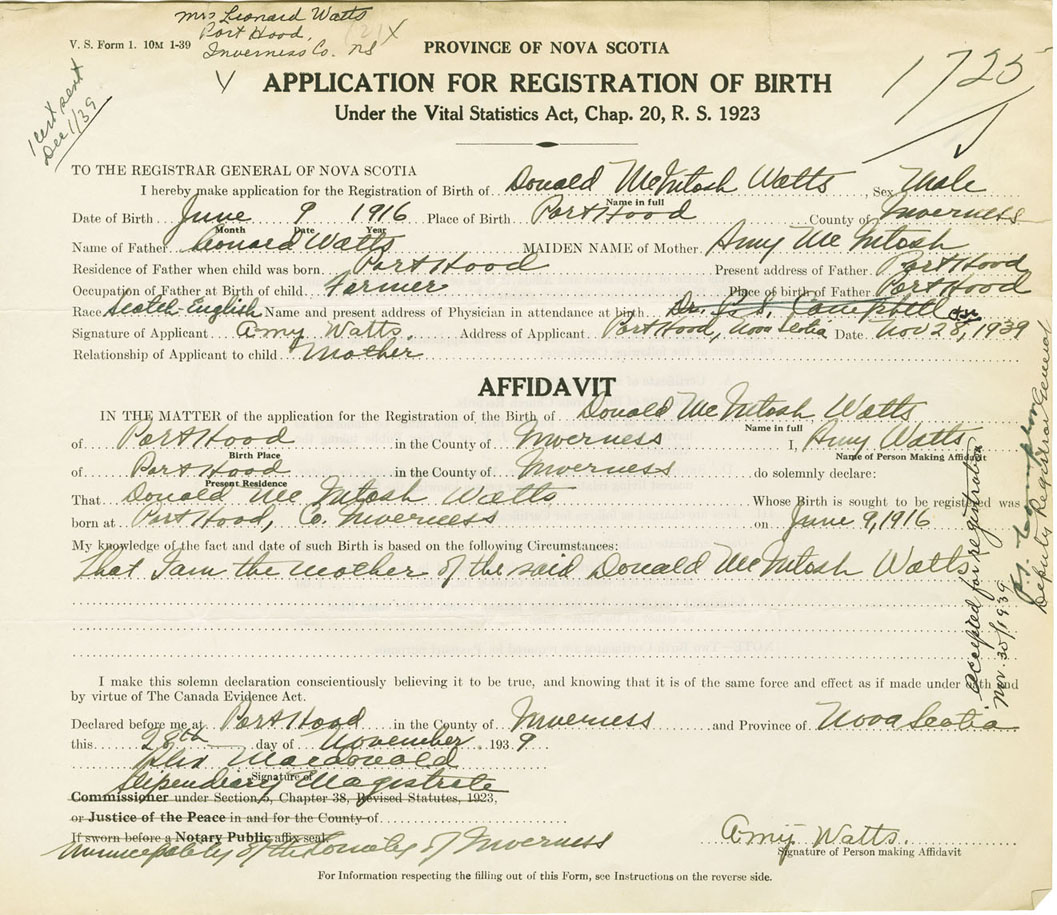 Mrs Leonard Watts
Port Hood,
Inverness Co. NS
(2) X
V. S. Form 1. 10M 1-39
PROVINCE OF NOVA SCOTIA
1725
APPLICATION FOR REGISTRATION OF BIRTH
Under the Vital Statistics Act, Chap. 20, R. S. 1923
1 cert sent
Dec 1/39
TO THE REGISTRAR GENERAL OF NOVA SCOTIA
I hereby make application for the Registration of Birth of Donald McIntosh Watts, Sex Male
Name in full
Date of Birth June 9 1916 Place of Birth Port Hood County of Inverness
Month Date Year
Name of Father Leonard Watts MAIDEN NAME of Mother Amy McIntosh
Residence of Father when child was born Port Hood Present address of Father Port Hood
Occupation of Father at Birth of child Farmer Place of birth of Father Port Hood
Race Scotch-English Name and present address of Physician in attendance at birth Dr. Campbell
Signature of Applicant Amy Watts. Address of Applicant Port Hood, Nova Scotia Date Nov 28, 1939
Relationship of Applicant to child Mother
AFFIDAVIT
IN THE MATTER of the application for the Registration of the Birth of Donald McIntosh Watts
Name in full
of Port Hood in the County of Inverness I, Amy Watts
Birth Place Name of Person Making Affidavit
of Port Hood in the County of Inverness do solemnly declare:
Present Residence
That Donald McIntosh Watts Whose Birth is sought to be registered was
born at Port Hood, Co. Inverness on June 9, 1916
My knowledge of the fact and date of such Birth is based on the following Circumstances:
That I am the mother of the said Donald McIntosh Watts.
I make this solemn declaration conscientiously believing it to be true, and knowing that it is of the same force and effect as if made under oath and
by virtue of The Canada Evidence Act.
Declared before me at Port Hood in the County of Inverness and Province of Nova Scotia
this 28th day of November 1939
Alex Macdonald
Signature of
Stipendiary Magistrate
Commissioner under Section 5, Chapter 38, Revised Statutes, 1923,
or Justice of the Peace in and for the County of
If sworn before a Notary Public affix seal.
Municipality of the County of Inverness
Amy Watts.
Signature of Person making Affidavit
For Information respecting the filling out of this Form, see Instructions on the reverse side.
accepted for registration
Nov. 30/1939
Deputy Registrar General